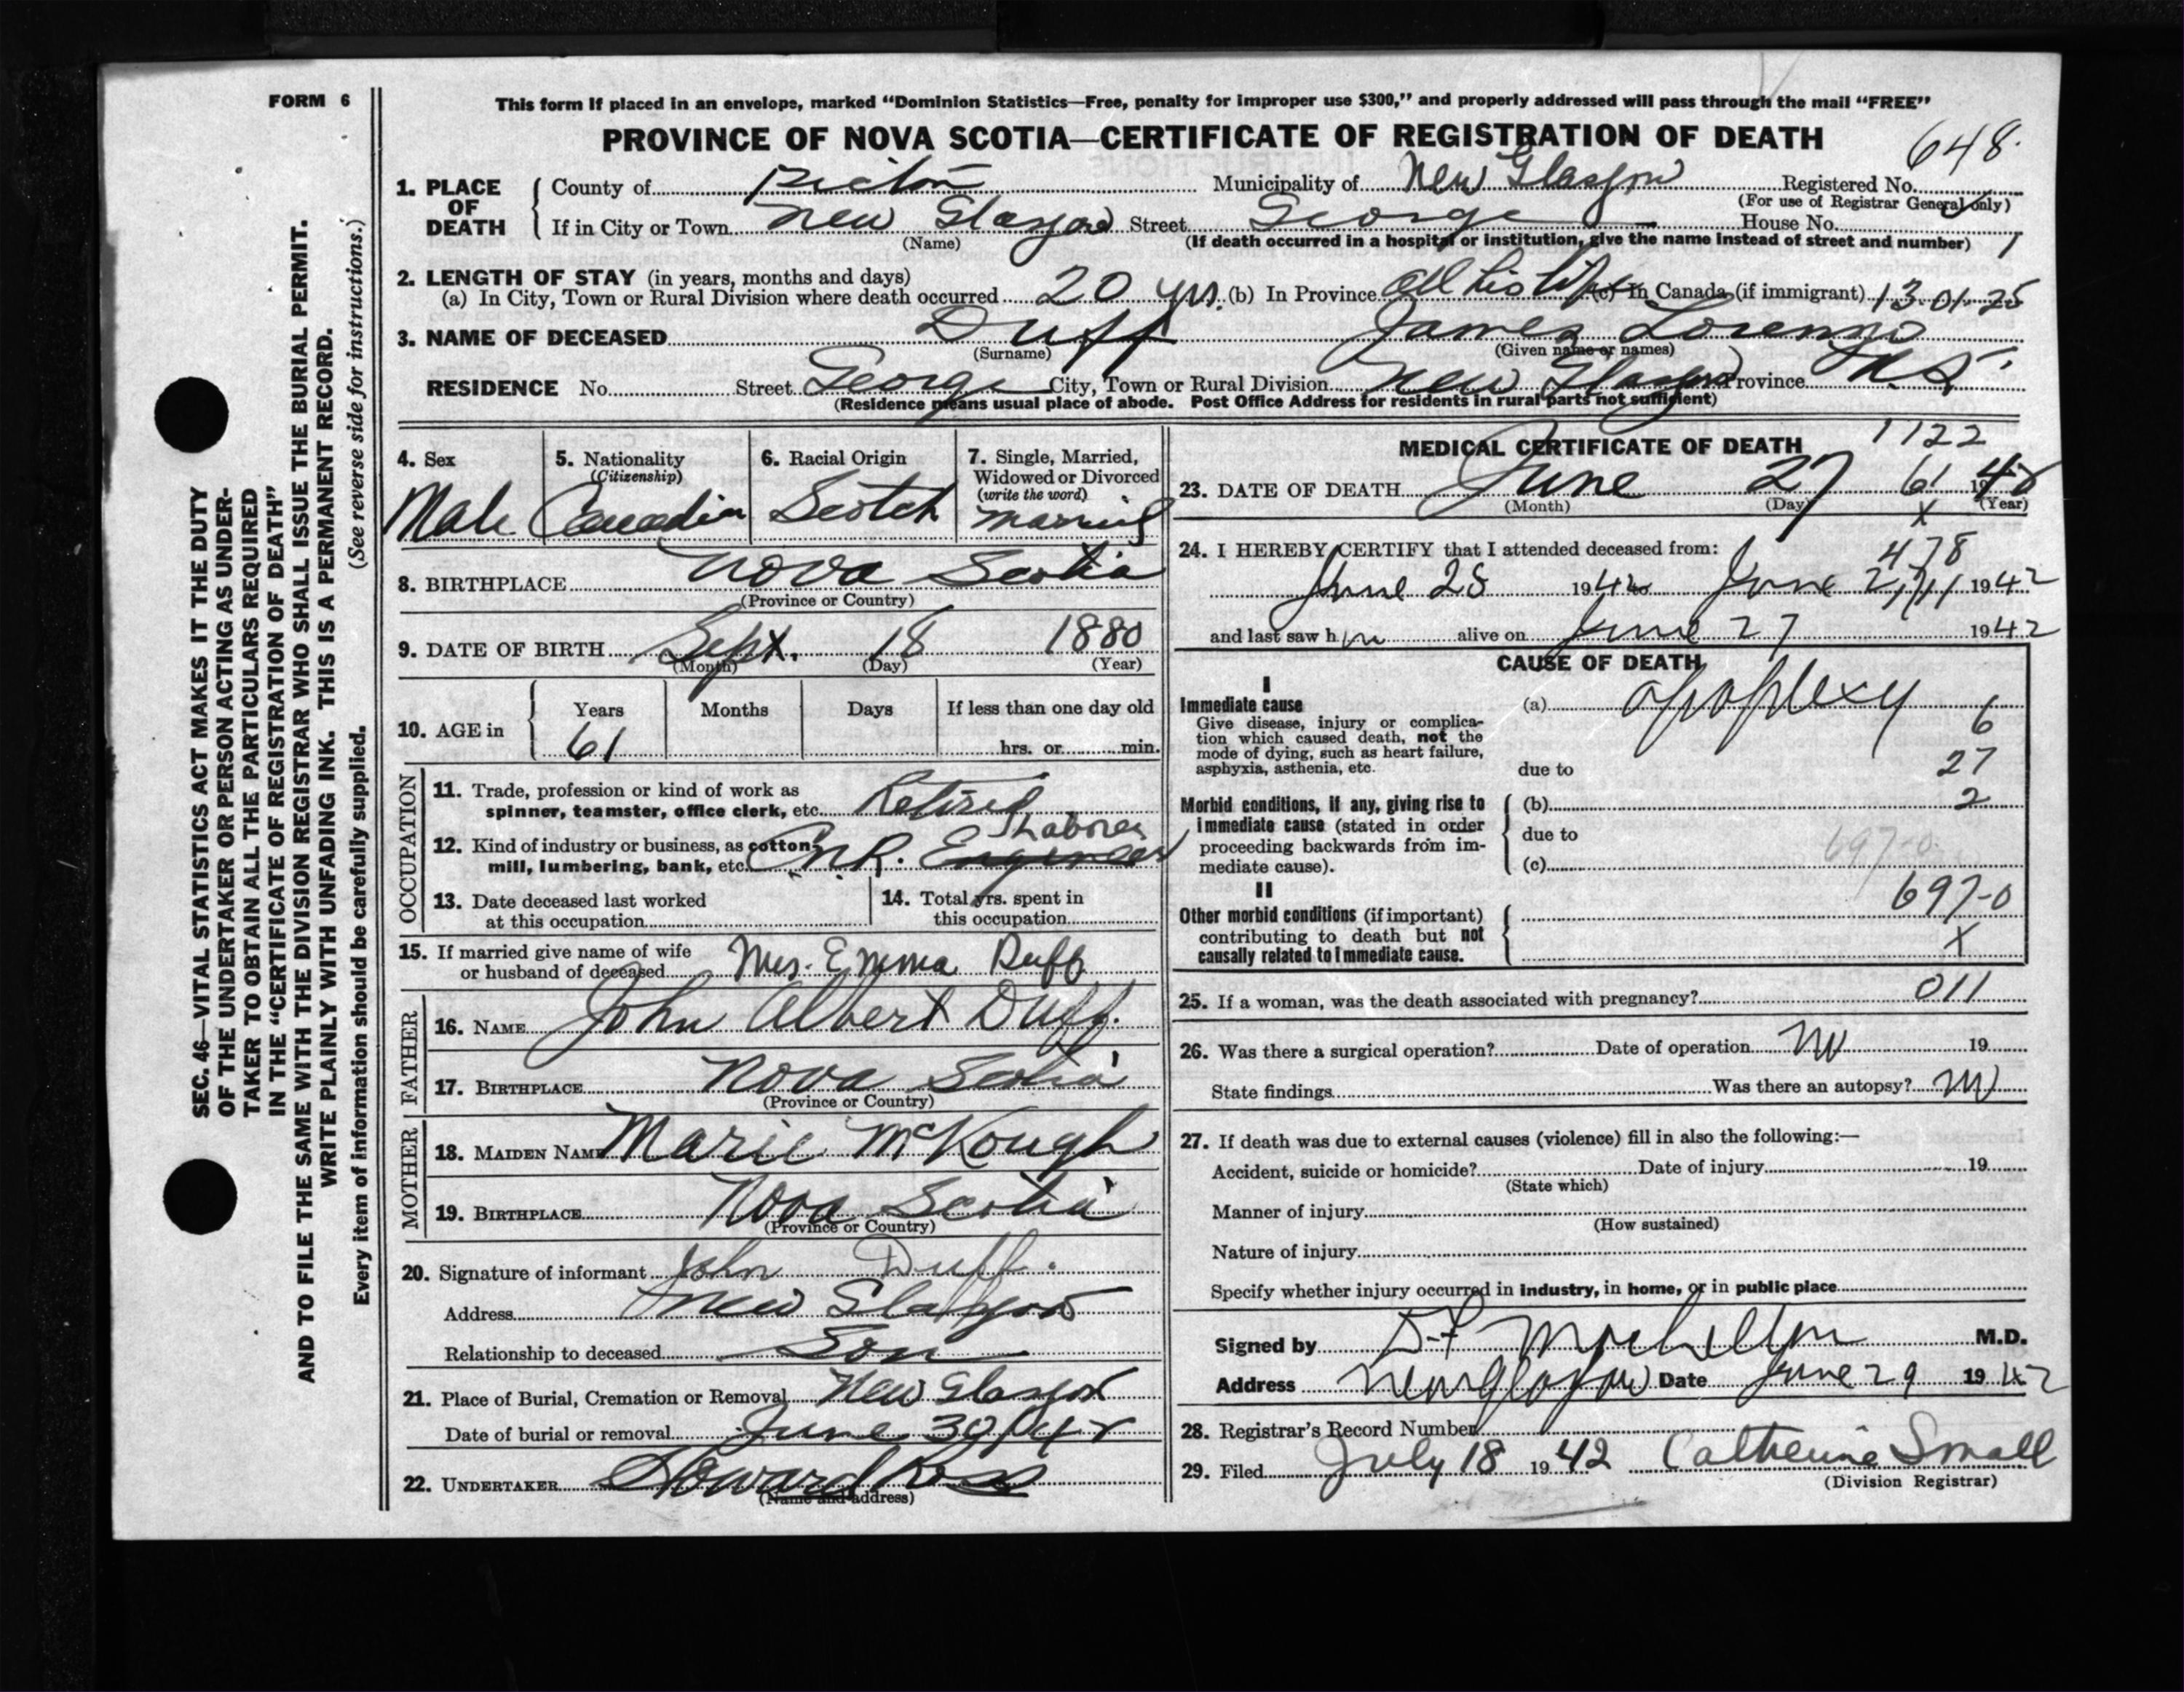 FORM 6
This form if placed in an envelope, marked "Dominion Statistics—Free, penalty for improper use $300," and properly addressed will pass through the mail "FREE"
PROVINCE OF NOVA SCOTIA—CERTIFICATE OF REGISTRATION OF DEATH
648
1. PLACE OF DEATH
County of Pictou Municipality of New Glasgow Registered No.
(For use of Registrar General only)
If in City or Town New Glasgow Street George House No.
(Name)
(If death occurred in a hospital or institution, give the name instead of street and number) 1
2. LENGTH OF STAY (in years, months and days)
(a) In City, Town or Rural Division where death occurred 20 yrs. (b) In Province All his life (c) In Canada (if immigrant) 13-01-25
3. NAME OF DECEASED Duff James Lorenzo
(Surname) (Given name or names)
RESIDENCE No. Street George City, Town or Rural Division New Glasgow Province N.S.
(Residence means usual place of abode. Post Office Address for residents in rural parts not sufficient)
4. Sex Male
5. Nationality (Citizenship) Canadian
6. Racial Origin Scotch
7. Single, Married, Widowed or Divorced (write the word) Married
8. BIRTHPLACE Nova Scotia
(Province or Country)
9. DATE OF BIRTH Sept. 18 1880
(Month) (Day) (Year)
10. AGE in Years Months Days If less than one day old
61 hrs. or min.
OCCUPATION
11. Trade, profession or kind of work as spinner, teamster, office clerk, etc. Retired
Laborer
12. Kind of industry or business, as cotton mill, lumbering, bank, etc. C.N.R. Engineer
13. Date deceased last worked at this occupation
14. Total yrs. spent in this occupation
15. If married give name of wife or husband of deceased Mrs. Emma Duff
FATHER
16. NAME John Albert Duff.
17. BIRTHPLACE Nova Scotia
(Province or Country)
MOTHER
18. MAIDEN NAME Marie McKough
19. BIRTHPLACE Nova Scotia
(Province or Country)
20. Signature of informant John Duff.
Address New Glasgow
Relationship to deceased Son
21. Place of Burial, Cremation or Removal New Glasgow
Date of burial or removal June 30/42
22. UNDERTAKER Howard Ross
(Name and address)
MEDICAL CERTIFICATE OF DEATH 1122
23. DATE OF DEATH June 27 61 1942
(Month) (Day) (Year)
x
24. I HEREBY CERTIFY that I attended deceased from: 478
June 25 1942 June 27/11 1942
and last saw him alive on June 27 1942
CAUSE OF DEATH
I
Immediate cause (a) apoplexy
Give disease, injury or complication which caused death, not the mode of dying, such as heart failure, asphyxia, asthenia, etc.
6
due to 27
Morbid conditions, if any, giving rise to immediate cause (stated in order proceeding backwards from immediate cause).
(b) 2
due to
697-0
(c)
II
697-0
Other morbid conditions (if important) contributing to death but not causally related to immediate cause.
X
25. If a woman, was the death associated with pregnancy? 011
26. Was there a surgical operation? Date of operation no 19
State findings Was there an autopsy? no
27. If death was due to external causes (violence) fill in also the following:—
Accident, suicide or homicide? Date of injury 19
(State which)
Manner of injury
(How sustained)
Nature of injury
Specify whether injury occurred in industry, in home, or in public place
Signed by M.D.
Address New Glasgow Date June 29 1942
28. Registrar's Record Number
29. Filed July 18 1942 Catherine Small
(Division Registrar)
SEC. 46—VITAL STATISTICS ACT MAKES IT THE DUTY
OF THE UNDERTAKER OR PERSON ACTING AS UNDER-
TAKER TO OBTAIN ALL THE PARTICULARS REQUIRED
IN THE "CERTIFICATE OF REGISTRATION OF DEATH"
AND TO FILE THE SAME WITH THE DIVISION REGISTRAR WHO SHALL ISSUE THE BURIAL PERMIT.
WRITE PLAINLY WITH UNFADING INK. THIS IS A PERMANENT RECORD.
Every item of information should be carefully supplied. (See reverse side for instructions.)